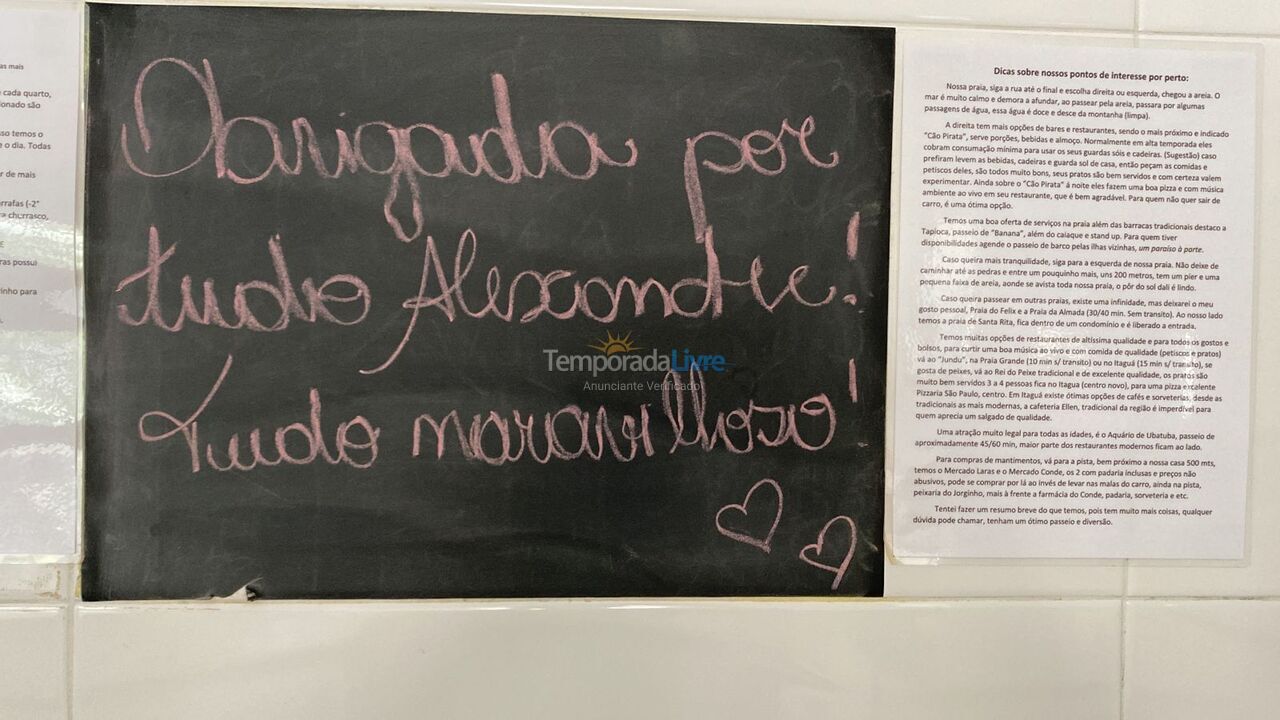 as mais
cada quarto,
ionado são
sso temos o
e o dia. Todas
r de mais
rrafas (-2°
a churrasco,
E
ras possui
inho para
Obarigadia por
tudo Alexandre!
Tudo maravilhoso!
TemporadaLivre
Anunciante Verificado
Dicas sobre nossos pontos de interesse por perto:
Nossa praia, siga a rua até o final e escolha direita ou esquerda, chegou a areia. O
mar é muito calmo e demora a afundar, ao passear pela areia, passara por algumas
passagens de água, essa água é doce e desce da montanha (limpa).
A direita tem mais opções de bares e restaurantes, sendo o mais próximo e indicado
"Cão Pirata", serve porções, bebidas e almoço. Normalmente em alta temporada eles
cobram consumação mínima para usar os seus guardas sóis e cadeiras. (Sugestão) caso
prefiram levem as bebidas, cadeiras e guarda sol de casa, então peçam as comidas e
petiscos deles, são todos muito bons, seus pratos são bem servidos e com certeza valem
experimentar. Ainda sobre o "Cão Pirata" á noite eles fazem uma boa pizza e com música
ambiente ao vivo em seu restaurante, que é bem agradável. Para quem não quer sair de
carro, é uma ótima opção.
Temos uma boa oferta de serviços na praia além das barracas tradicionais destaco a
Tapioca, passeio de "Banana", além do caiaque e stand up. Para quem tiver
disponibilidades agende o passeio de barco pelas ilhas vizinhas, um paraíso à parte.
Caso queira mais tranquilidade, siga para a esquerda de nossa praia. Não deixe de
caminhar até as pedras e entre um pouquinho mais, uns 200 metros, tem um pier e uma
pequena faixa de areia, aonde se avista toda nossa praia, o pôr do sol dali é lindo.
Caso queira passear em outras praias, existe uma infinidade, mas deixarei o meu
gosto pessoal, Praia do Felix e a Praia da Almada (30/40 min. Sem transito). Ao nosso lado
temos a praia de Santa Rita, fica dentro de um condomínio e é liberado a entrada.
Temos muitas opções de restaurantes de altíssima qualidade e para todos os gostos e
bolsos, para curtir uma boa música ao vivo e com comida de qualidade (petiscos e pratos)
vá ao "Jundu", na Praia Grande (10 min s/ transito) ou no Itaguá (15 min s/ transito), se
gosta de peixes, vá ao Rei do Peixe tradicional e de excelente qualidade, os pratos são
muito bem servidos 3 a 4 pessoas fica no Itagua (centro novo), para uma pizza excelente
Pizzaria São Paulo, centro. Em Itaguá existe ótimas opções de cafés e sorveterias, desde as
tradicionais as mais modernas, a cafeteria Ellen, tradicional da região é imperdível para
quem aprecia um salgado de qualidade.
Uma atração muito legal para todas as idades, é o Aquário de Ubatuba, passeio de
aproximadamente 45/60 min, maior parte dos restaurantes modernos ficam ao lado.
Para compras de mantimentos, vá para a pista, bem próximo a nossa casa 500 mts,
temos o Mercado Laras e o Mercado Conde, os 2 com padaria inclusas e preços não
abusivos, pode se comprar por lá ao invés de levar nas malas do carro, ainda na pista,
peixaria do Jorginho, mais à frente a farmácia do Conde, padaria, sorveteria e etc.
Tentei fazer um resumo breve do que temos, pois tem muito mais coisas, qualquer
dúvida pode chamar, tenham um ótimo passeio e diversão.